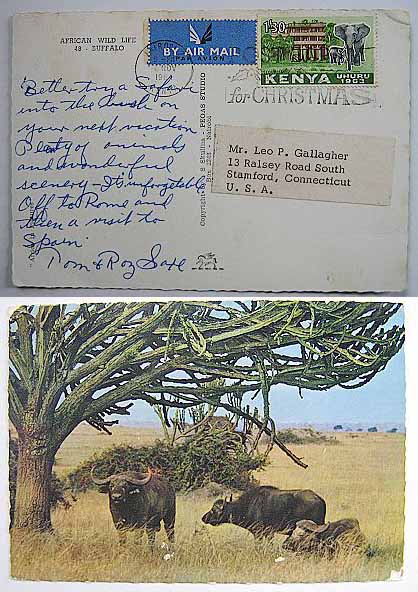 AFRICAN WILD LIFE
48 - BUFFALO
BY AIR MAIL
PAR AVION
1'30
KENYA UHURU 1963
for CHRISTMAS
Better try a Safari
into the bush on
your next vacation.
Plenty of animals
and wonderful
scenery - It's unforgetable
Off to Rome and
then a visit to
Spain
Dom & Roz Saxe
PEGAS STUDIO
Copyright by S Skulina
Nairobi
Mr. Leo P. Gallagher
13 Ralsey Road South
Stamford, Connecticut
U. S. A.